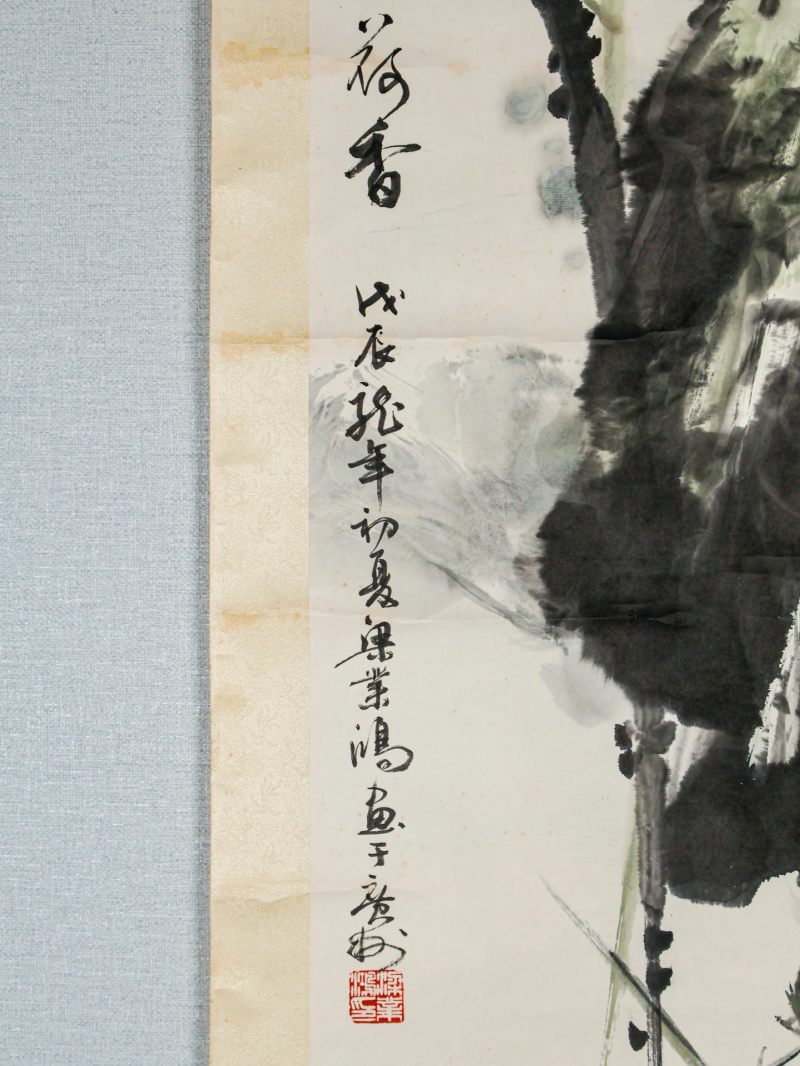 荷香
戊辰龍年初夏梁業鴻画于廣州
梁業鴻印